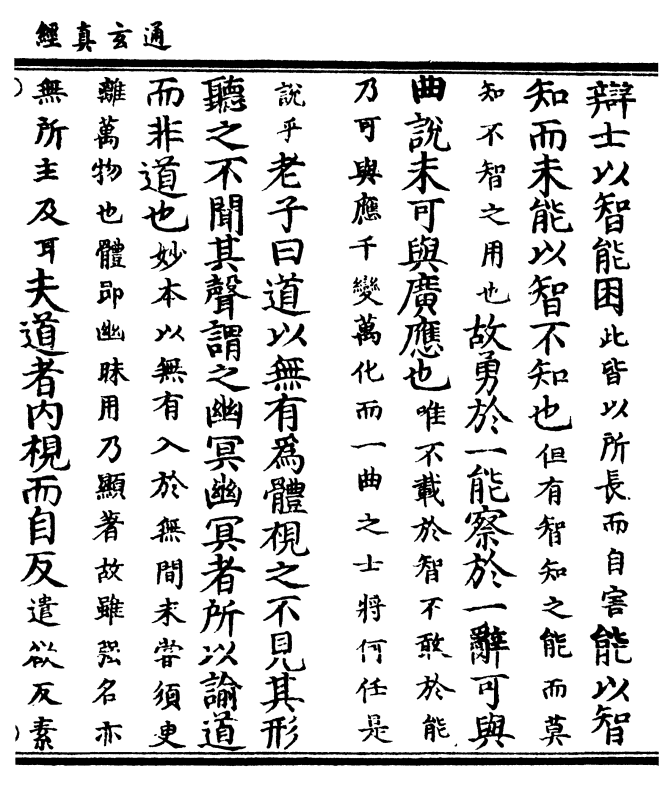 通玄真經
辯士以智能困此皆以所長而自害能以智
知而未能以智不知也但有智知之能而莫
知不智之用也故勇於一能察於一辭可與
曲說未可與廣應也唯不載於智不敢於能
乃可與應千變萬化而一曲之士將何任是
說乎老子曰道以無有為體視之不見其形
聽之不聞其聲謂之幽冥幽冥者所以諭道
而非道也妙本以無有入於無間未嘗須更
離萬物也體即幽昧用乃顯著故雖強名亦
無所主及耳夫道者內視而自反遣欲反素